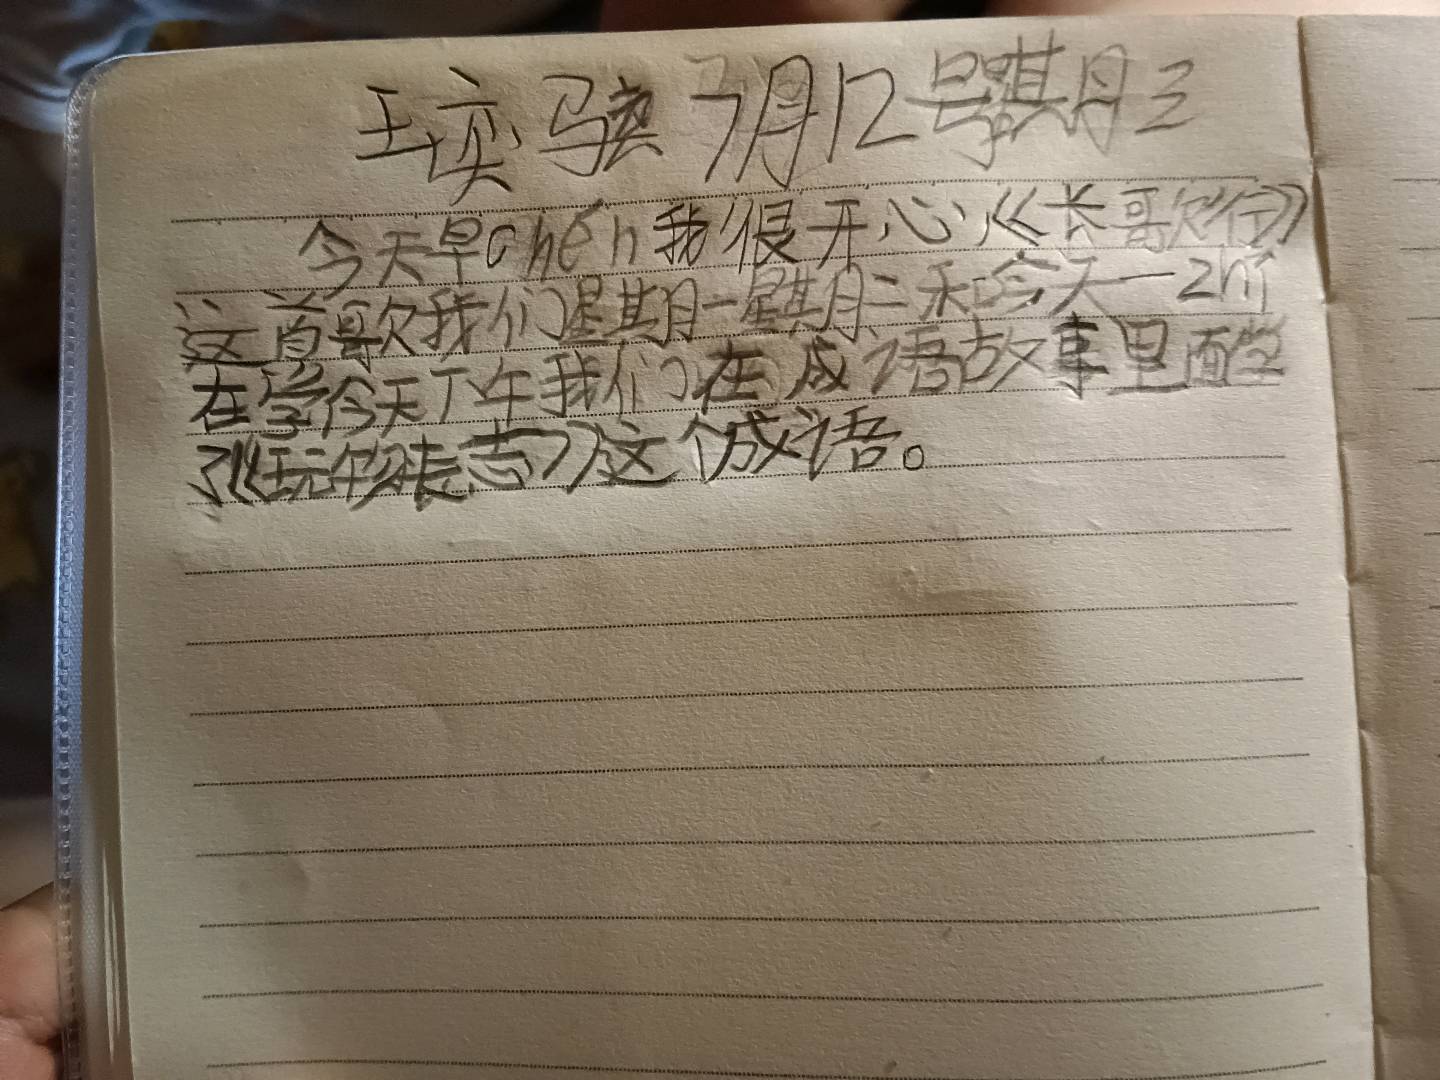 王奕骁 7月12号星期三
今天早chén我很开心《长歌行》
这首歌我们星期一星期二和今天一zhí
在学今天下午我们在成语故事里面学
了《玩物丧志》这个成语。